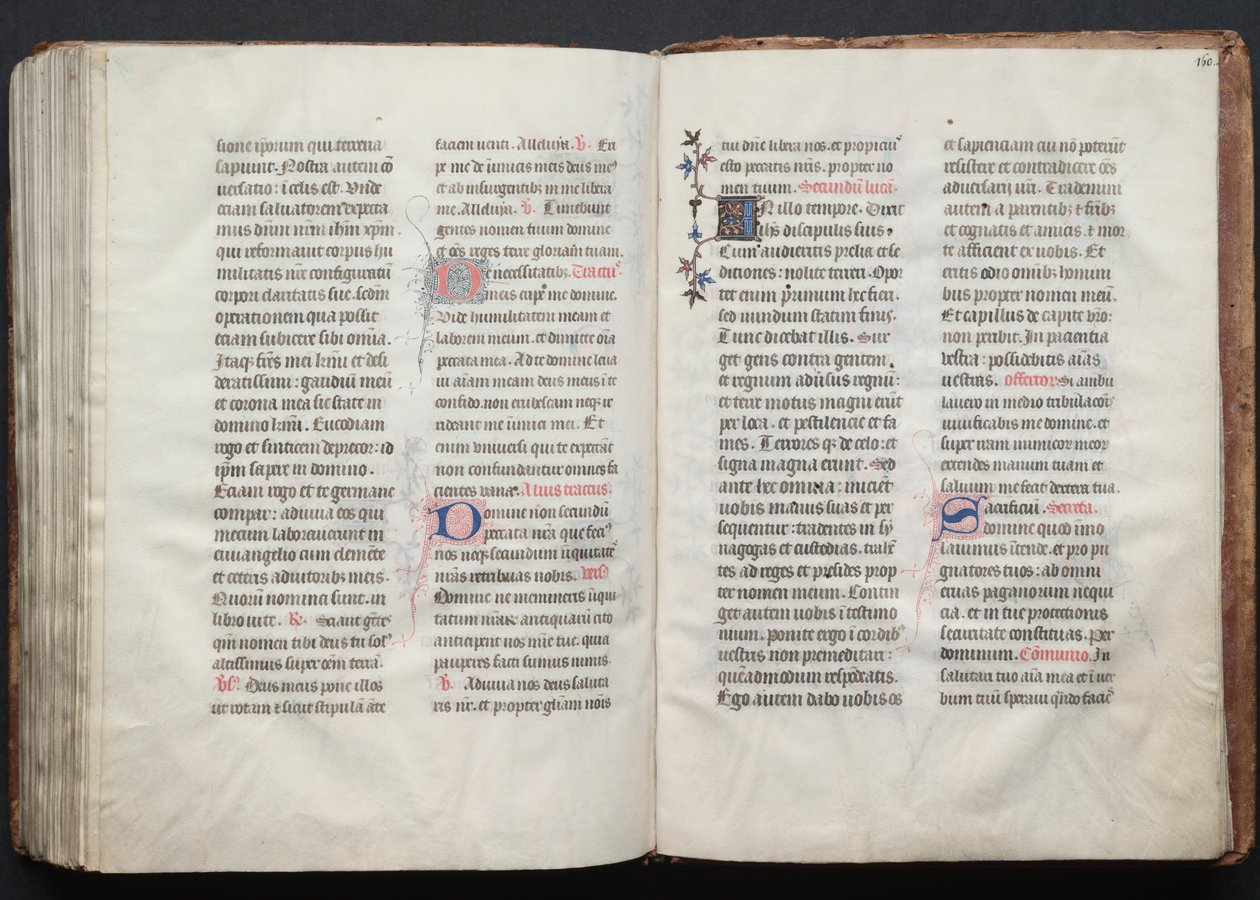 sione ip̄orum qui terrena
sapiunt. Nostra autem cō
uersatio: ī celis est. Vnde
etiam saluatorem expecta
mus dūm nr̄m ih̄m xp̄m.
qui reformauit corpus hu
militatis nr̄e configuratū
corpori claritatis sue. scdm̄
operationem qua possit
etiam subicere sibi omīa.
Itaq; frēs mei kr̄mi et desi
deratissimi: gaudiū meū
et corona mea sic state in
domino kr̄mi. Eucodiam
rogo et sinticem deprecor: id
ip̄m sapere in domino.
Etiam rogo et te germane
compar: adiuua eos qui
mecum laborauerunt in
euuangelio cum clemēte
et ceteris adiutoribꝫ meis.
Quorū nomina sunt. in
libro uite. R̄. Sciant gētes
qm̄ nomen tibi deus tu solꝰ
altissimus super om̄m terrā.
v̄s̄. Deus meus pone illos
ut rotam ⁊ sicut stipulā āte
faciem uenti. Alleluya. v̄. Eri
pe me de īimicis meis deus meꝰ
et ab insurgentibꝫ in me libera
me. Alleluya. v̄. Timebunt
gentes nomen tuum domine
et om̄s reges terre gloriam tuam.
De necessitatibꝫ. Tractꝰ.
meis eripe me domine.
Vide humilitatem meam et
laborem meum. et dimitte oīa
peccata mea. Ad te domine leua
ui aīam meam deus meus ī te
confido. non erubescam neqꝫ ir
rideant me īimici mei. Et
enim vniuersi qui te expectāt
non confundantur omnes fa
cientes vana. Alius tractus.
Domine non secundū
peccata nr̄a que fecīꝰ
nos neqꝫ secundum īiquitates
nr̄as retribuas nobis. versꝰ
Domine ne memineris īiqui
tatum nr̄ar̄ antiquarū cito
anticipent nos mīe tue. quia
pauperes facti sumus nimis.
v̄. Adiuua nos deus saluta
ris nr̄. et propter gliam nōis
160.
tui dn̄e libera nos. et propiciꝰ
esto peccatis nr̄is. propter no
men tuum. Secundū lucā.
IN illo tempore. Dixit
ih̄s discipulis suis.
Cum audieritis prelia et se
ditiones: nolite terreri. Opor
tet enim primum hec fieri.
sed nundum statim finis.
Tunc dicebat illis. Sur
get gens contra gentem.
et regnum aduersus regnū:
et terre motus magni erūt
per loca. et pestilencie et fa
mes. Terrores qꝫ de celo: et
signa magna erunt. Sed
ante hec omnia: inicient
uobis manus suas et per
sequentur: tradentes in sy
nagogas et custodias. trahē
tes ad reges et presides prop
ter nomen meum. Contin
get autem uobis ī testimo
nium. ponite ergo ī cordibꝰ
uestris non premeditari:
quēadmodum respōdeatis.
Ego autem dabo uobis os
et sapienciam cui nō poterūt
resistere et contradicere om̄s
aduersarij ur̄i. Trademini
autem a parentibꝫ ⁊ fr̄ibꝫ
et cognatis et amicis. ⁊ mor
te afficient ex uobis. Et
eritis odio omībꝫ homini
bus propter nomen meū.
Et capillus de capite vr̄o:
non peribit. In pacientia
vestra: possidebitis aīas
uestras. offertor̄. Si ambu
lauero in medio tribulacōīs
uiuificabis me domine. et
super iram inimicor̄ meor̄
extendes manum tuam et
saluum me fecit dextera tua.
Sacrificiū. Secreta.
domine quod īmo
lauimus ītende. et pro pu
gnatores tuos: ab omni
exuas paganorum nequi
cia. et in tue protectionis
securitate constituas. Per
dominum. Cōmunio. In
salutari tuo aīa mea et ī uer
bum tuū speraui qn̄do facies